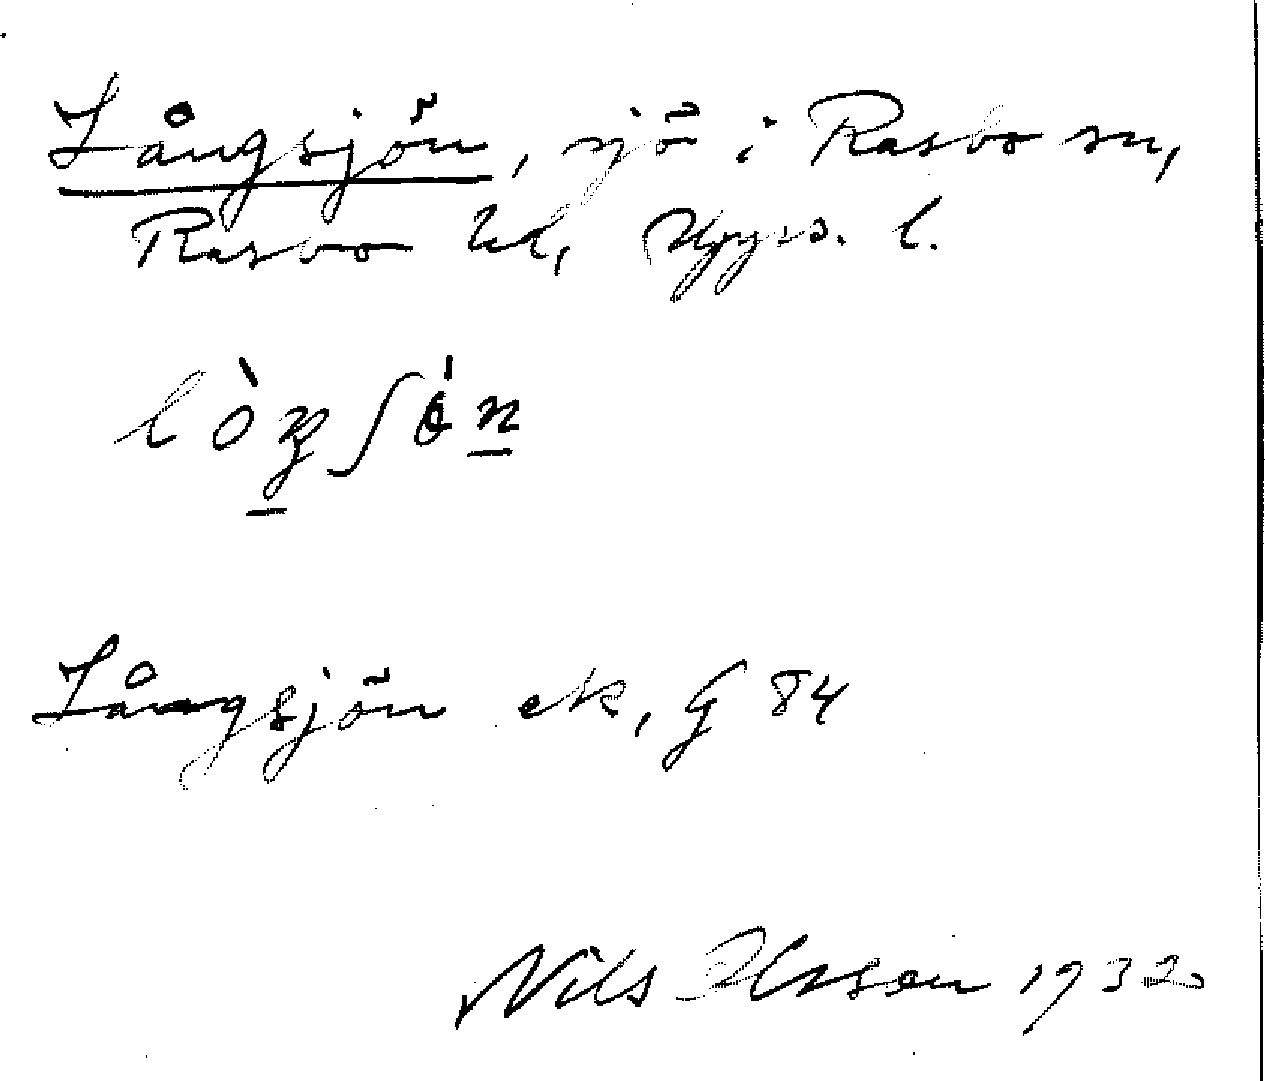 Långsjön, sjö i Rasbo sn,
Rasbo hd, Upps. l.
Långsjön ek, G 84
Nils Olsson 1932